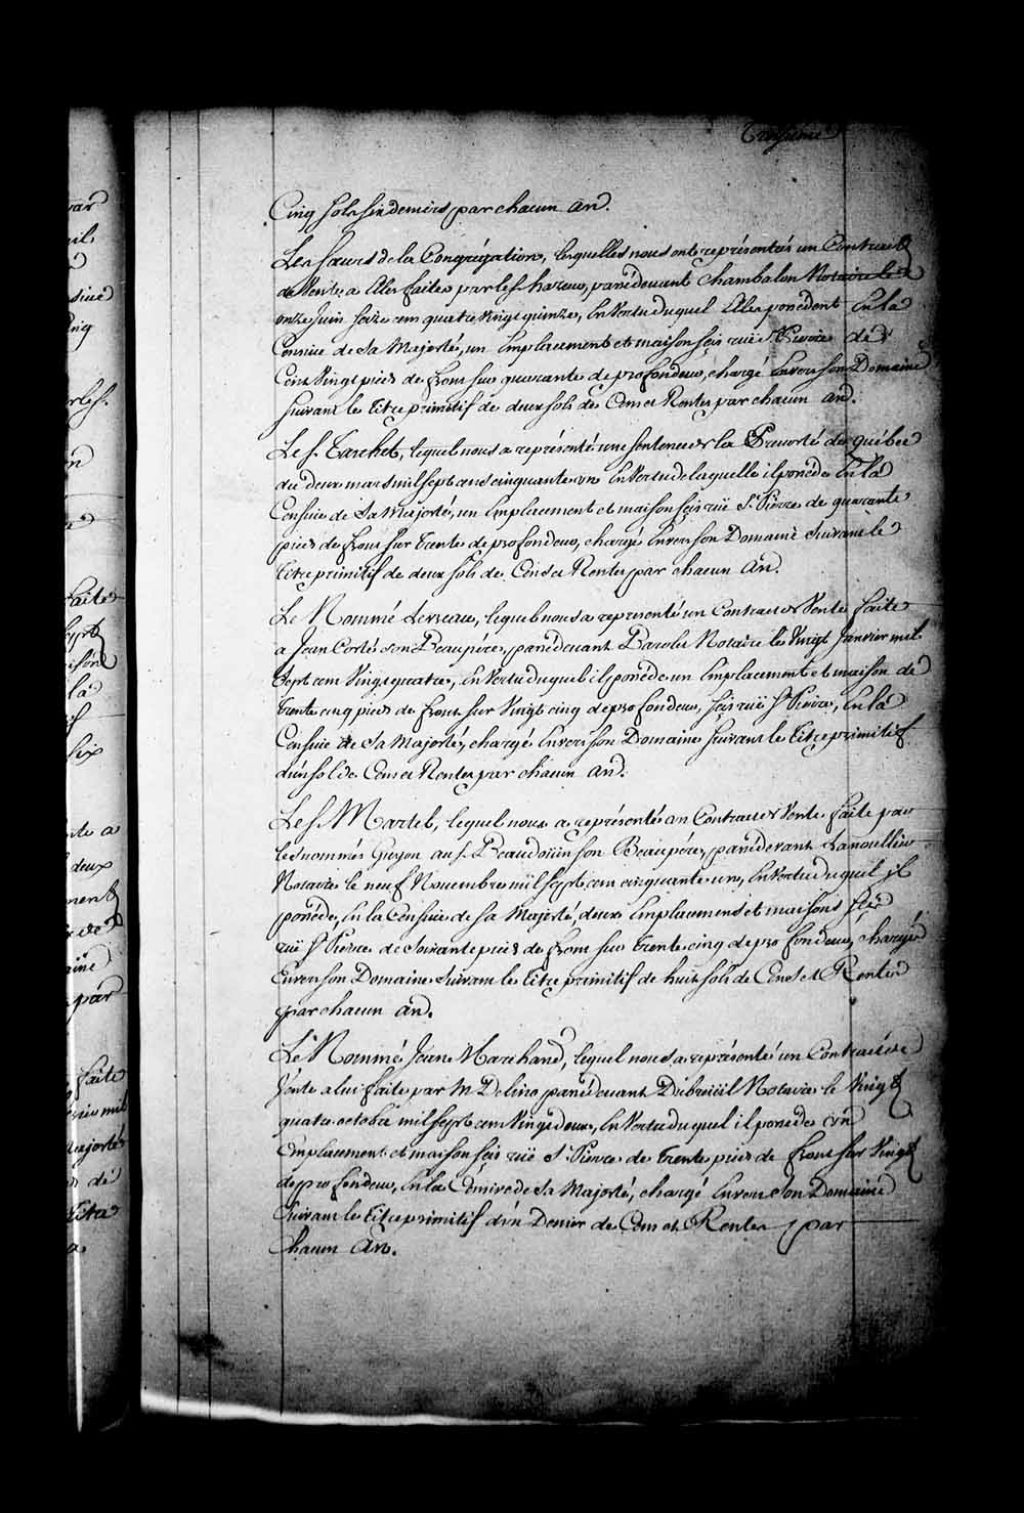 Cinq sols six deniers par chacun an.
Les Sœurs de la Congrégation, lesquelles nous ont représentés un Contract
de Vente a Elles faite par le S. hazeur, pardevant Chambalon Notaire le
onze juin seize cent quatre vingt quinze, En Vertu duquel Elles possedent En la
Censive de Sa Majesté, un Emplacement et maison sis ruë St. Pierre de
Cent Vingt pieds de front sur quarante de profondeur, chargé Envers son Domaine
suivant le titre primitif de deux sols de Cens et Rentes par chacun an.
Le S. lequel nous a représenté une sentence de la Prevosté de québec
du deux mars mil sept cens cinquante un En Vertu de laquelle il possede En la
Censive de Sa Majesté, un Emplacement et maison sis ruë St. Pierre de quarante
pieds de front sur trente de profondeur, chargé Envers son Domaine suivant le
titre primitif de deux sols de Cens et Rentes par chacun an.
Le Nommé Levreau, lequel nous a representé un Contract de Vente faite
a Jean Corté son Beaupere, pardevant Barolet Notaire le Vingt Janvier mil
sept cent Vingt quatre, En Vertu duquel il possède un Emplacement et maison de
trente cinq pieds de front sur Vingt cinq de profondeur, sis ruë St. Pierre, En la
Censive de Sa Majesté, chargé Envers son Domaine suivant le titre primitif
d'un sol de Cens et Rentes par chacun an.
Le S. Martel, lequel nous a représenté un Contract de Vente faite par
le nommé Guyon au S. Beaudoüin son Beaupére, pardevant Lanoullier
Notaire le neuf Novembre mil sept cent cinquante un, En Vertu duquel il
possède, En la Censive de Sa Majesté, deux Emplacemens et maisons sis
ruë St. Pierre de soixante pieds de front sur trente cinq de profondeur, chargé
Envers son Domaine suivant le titre primitif de huit sols de Cens et Rentes
par chacun an.
Le Nommé Jean Marchand, lequel nous a représenté un Contract de
Vente a lui faite par M. Delino pardevant Dubreüil Notaire le Vingt
quatre octobre mil sept cent Vingt deux, En Vertu duquel il possede un
Emplacement et maison sis ruë St. Pierre de trente pieds de front sur Vingt
de profondeur, En la Censive de Sa Majesté, chargé Envers son Domaine
suivant le titre primitif d'un Denier de Cens et Rentes par
chacun An.